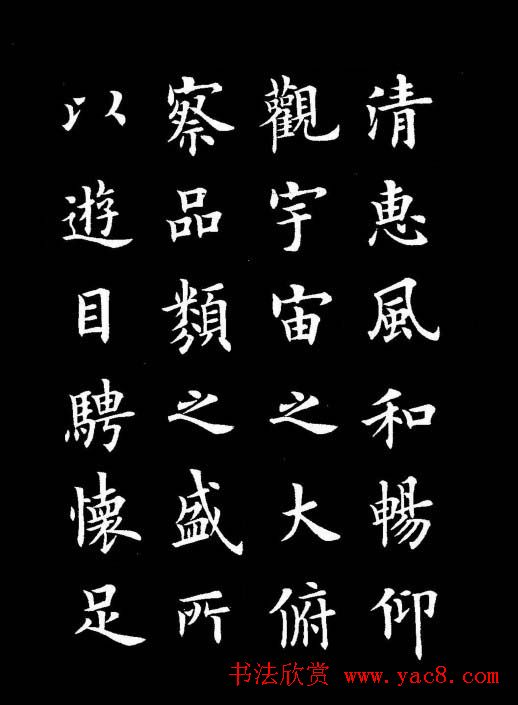 清惠風和暢仰
觀宇宙之大俯
察品類之盛所
以遊目騁懷足
书法欣赏 www.yac8.com